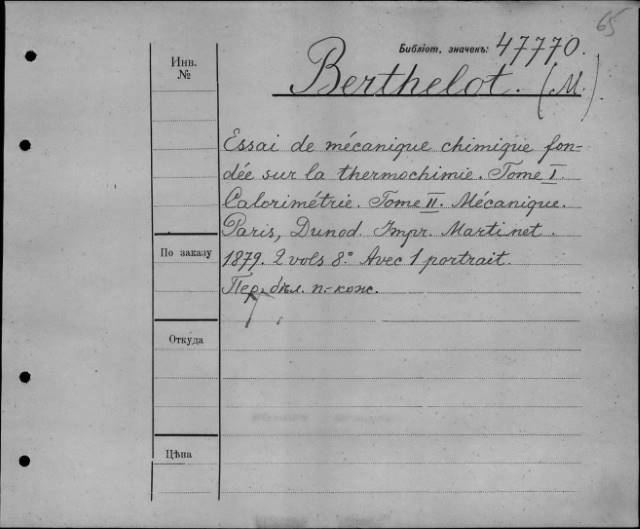 65
Библіот. значекъ: 47770.
Инв.
№
Berthelot. (M.)
Essai de mécanique chimique fon-
dée sur la thermochimie. Tome I.
Calorimétrie. Tome II. Mécanique.
Paris, Dunod. Impr. Martinet.
По заказу
1879. 2 vols 8.° Avec 1 portrait.
Пер. бѣл. п.-кож.
Откуда
Цѣна